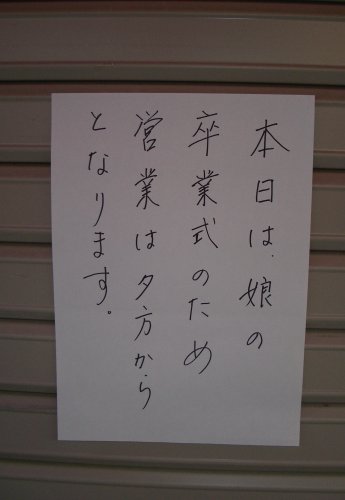 本日は、娘の
卒業式のため
営業は夕方から
となります。